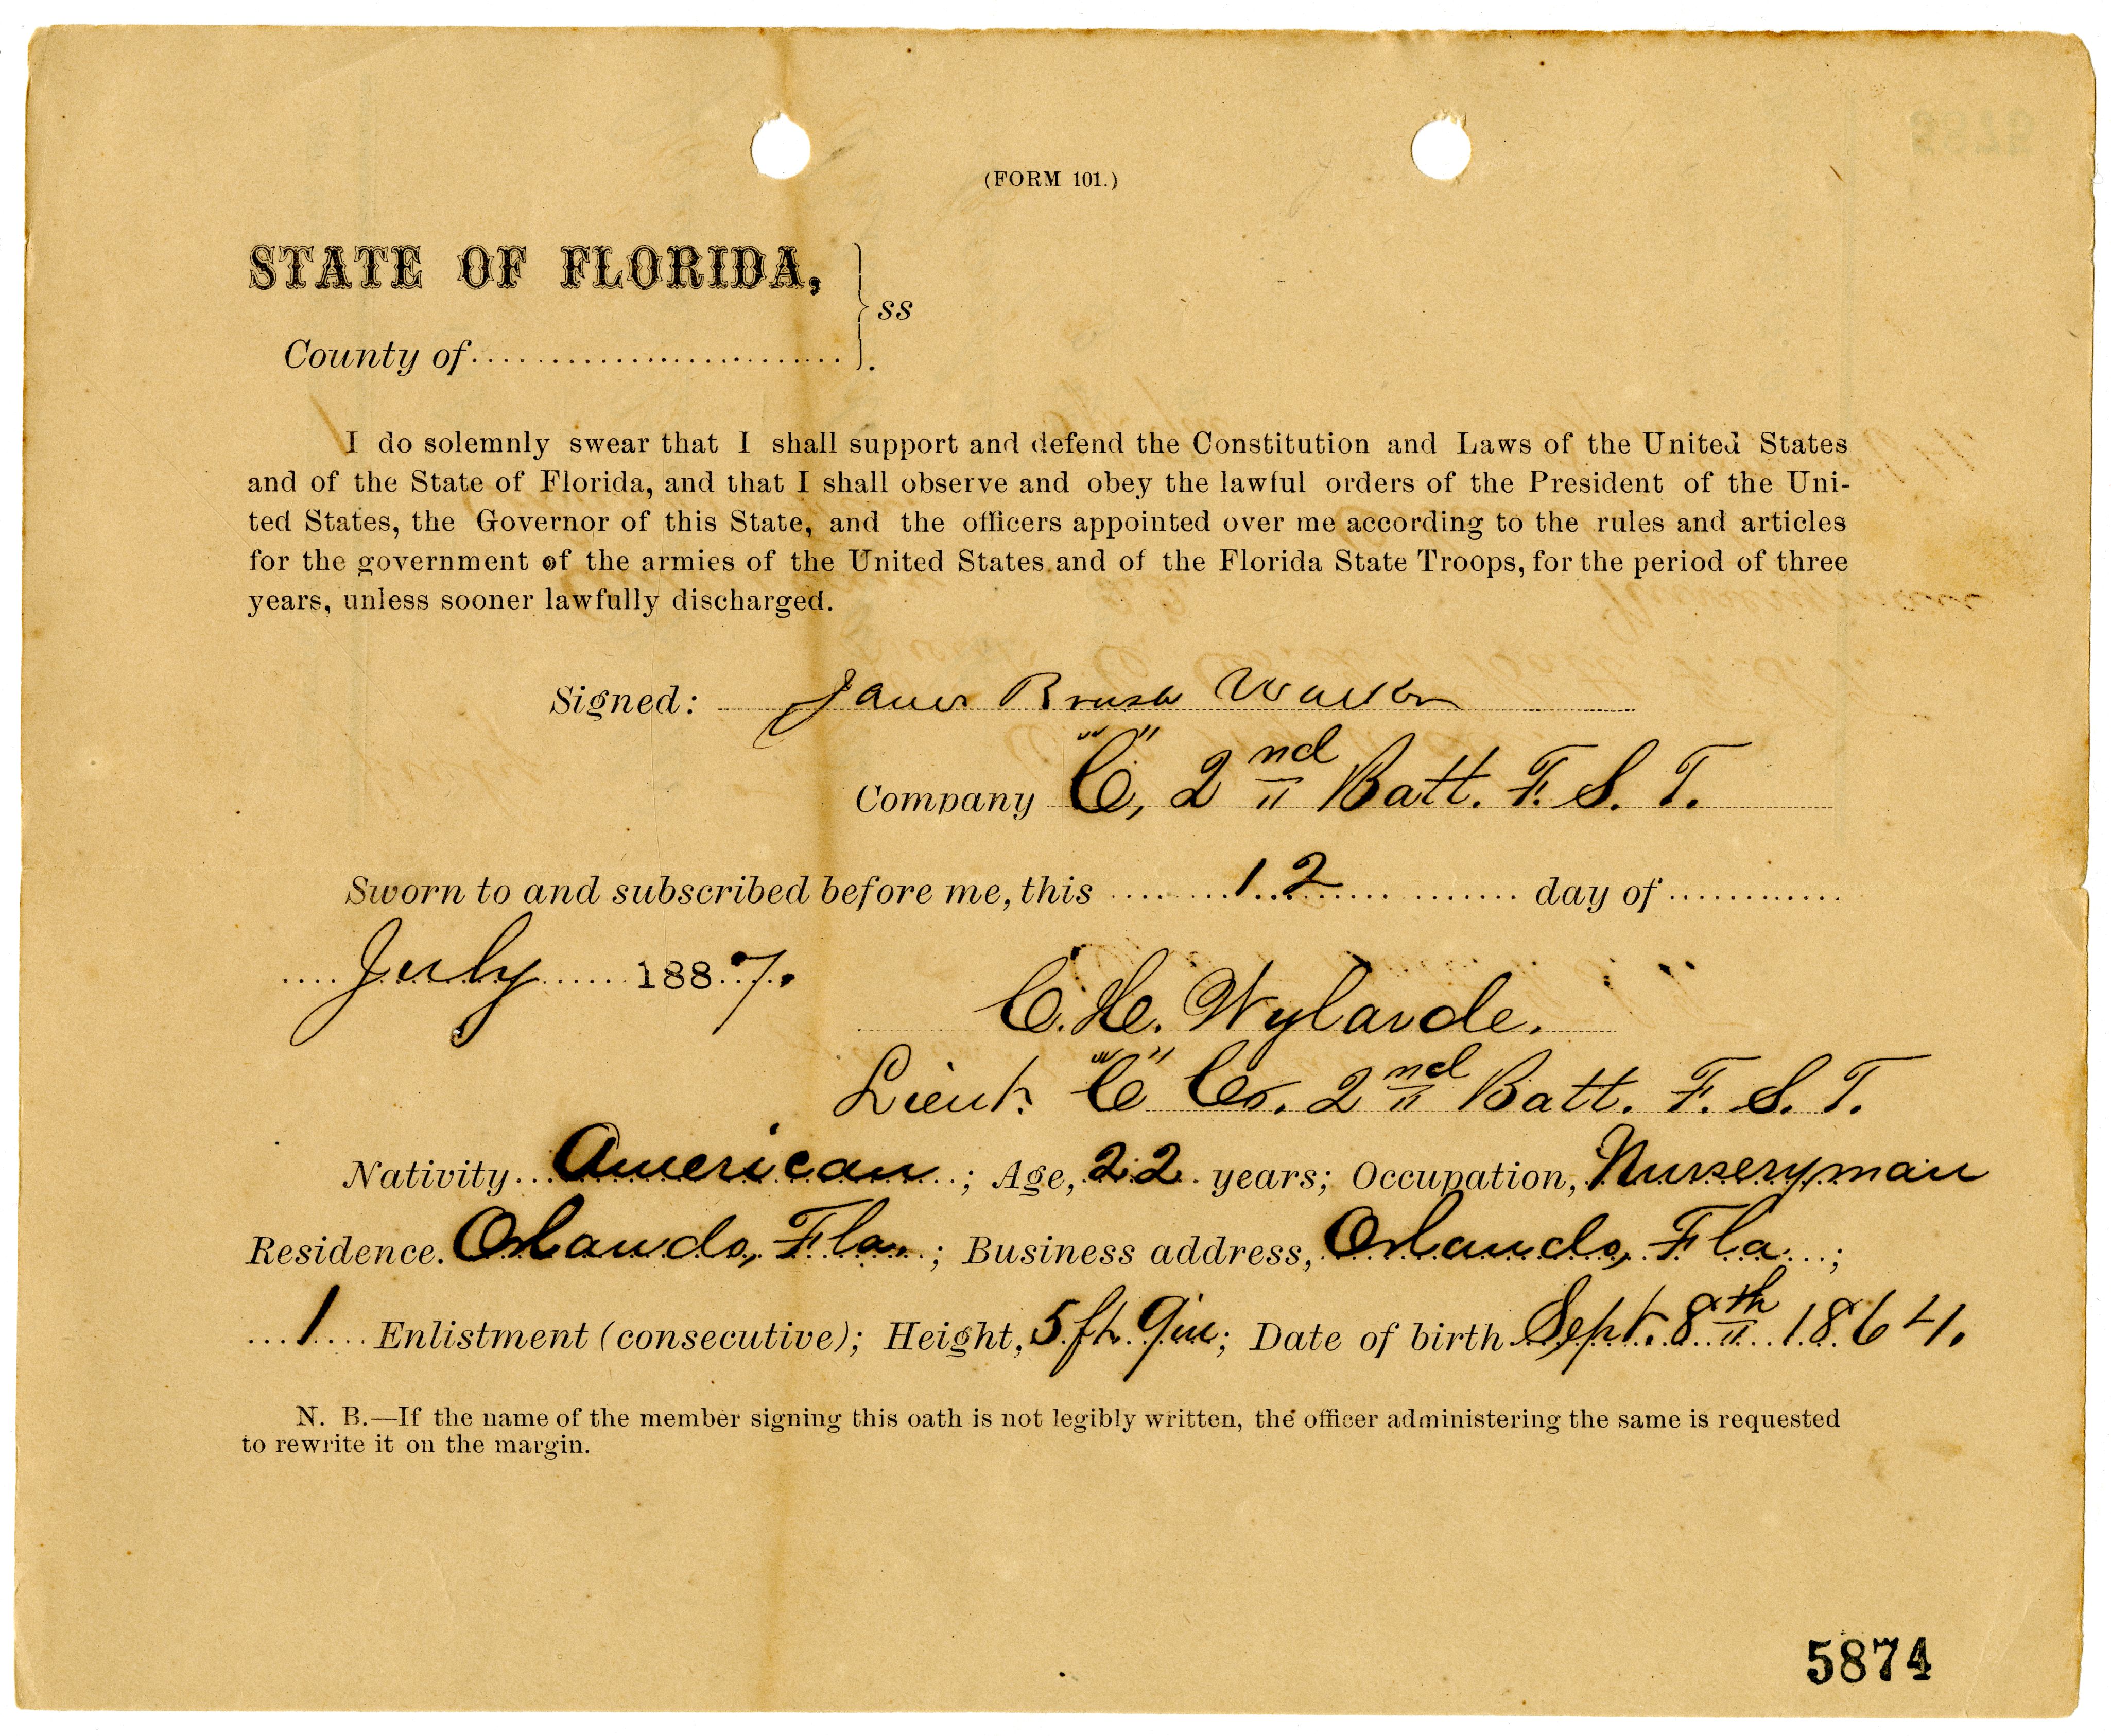 (FORM 101.)
STATE OF FLORIDA,
ss
County of
I do solemnly swear that I shall support and defend the Constitution and Laws of the United States
and of the State of Florida, and that I shall observe and obey the lawful orders of the President of the Uni-
ted States, the Governor of this State, and the officers appointed over me according to the rules and articles
for the government of the armies of the United States and of the Florida State Troops, for the period of three
years, unless sooner lawfully discharged.
Signed: James Brush Walker
Company "C", 2nd Batt. F. S. T.
Sworn to and subscribed before me, this 12 day of
July 1887.
C. H. Wylarde.
Lieut. "C" Co. 2nd Batt. F. S. T.
Nativity American; Age, 22 years; Occupation, Nurseryman
Residence. Orlando, Fla.; Business address, Orlando, Fla;
1 Enlistment (consecutive); Height, 5 ft. 9 in; Date of birth Sept. 8th 1864.
N. B.—If the name of the member signing this oath is not legibly written, the officer administering the same is requested
to rewrite it on the margin.
5874